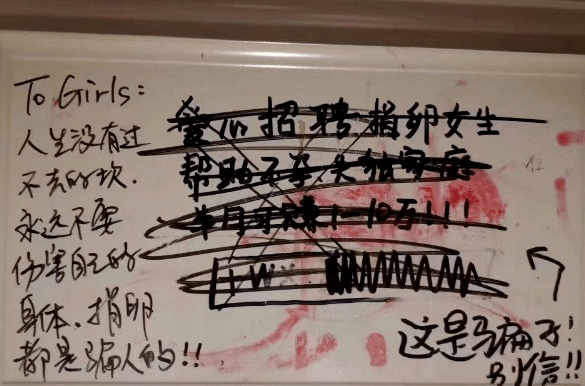 To Girls:
人生没有过
不去的坎.
永远不要
伤害自己的
身体、捐卵
都是骗人的!!
爱心招聘捐卵女生
帮助不孕失独家庭
半月可赚1-10万!!!
这是骗子!
别信!!